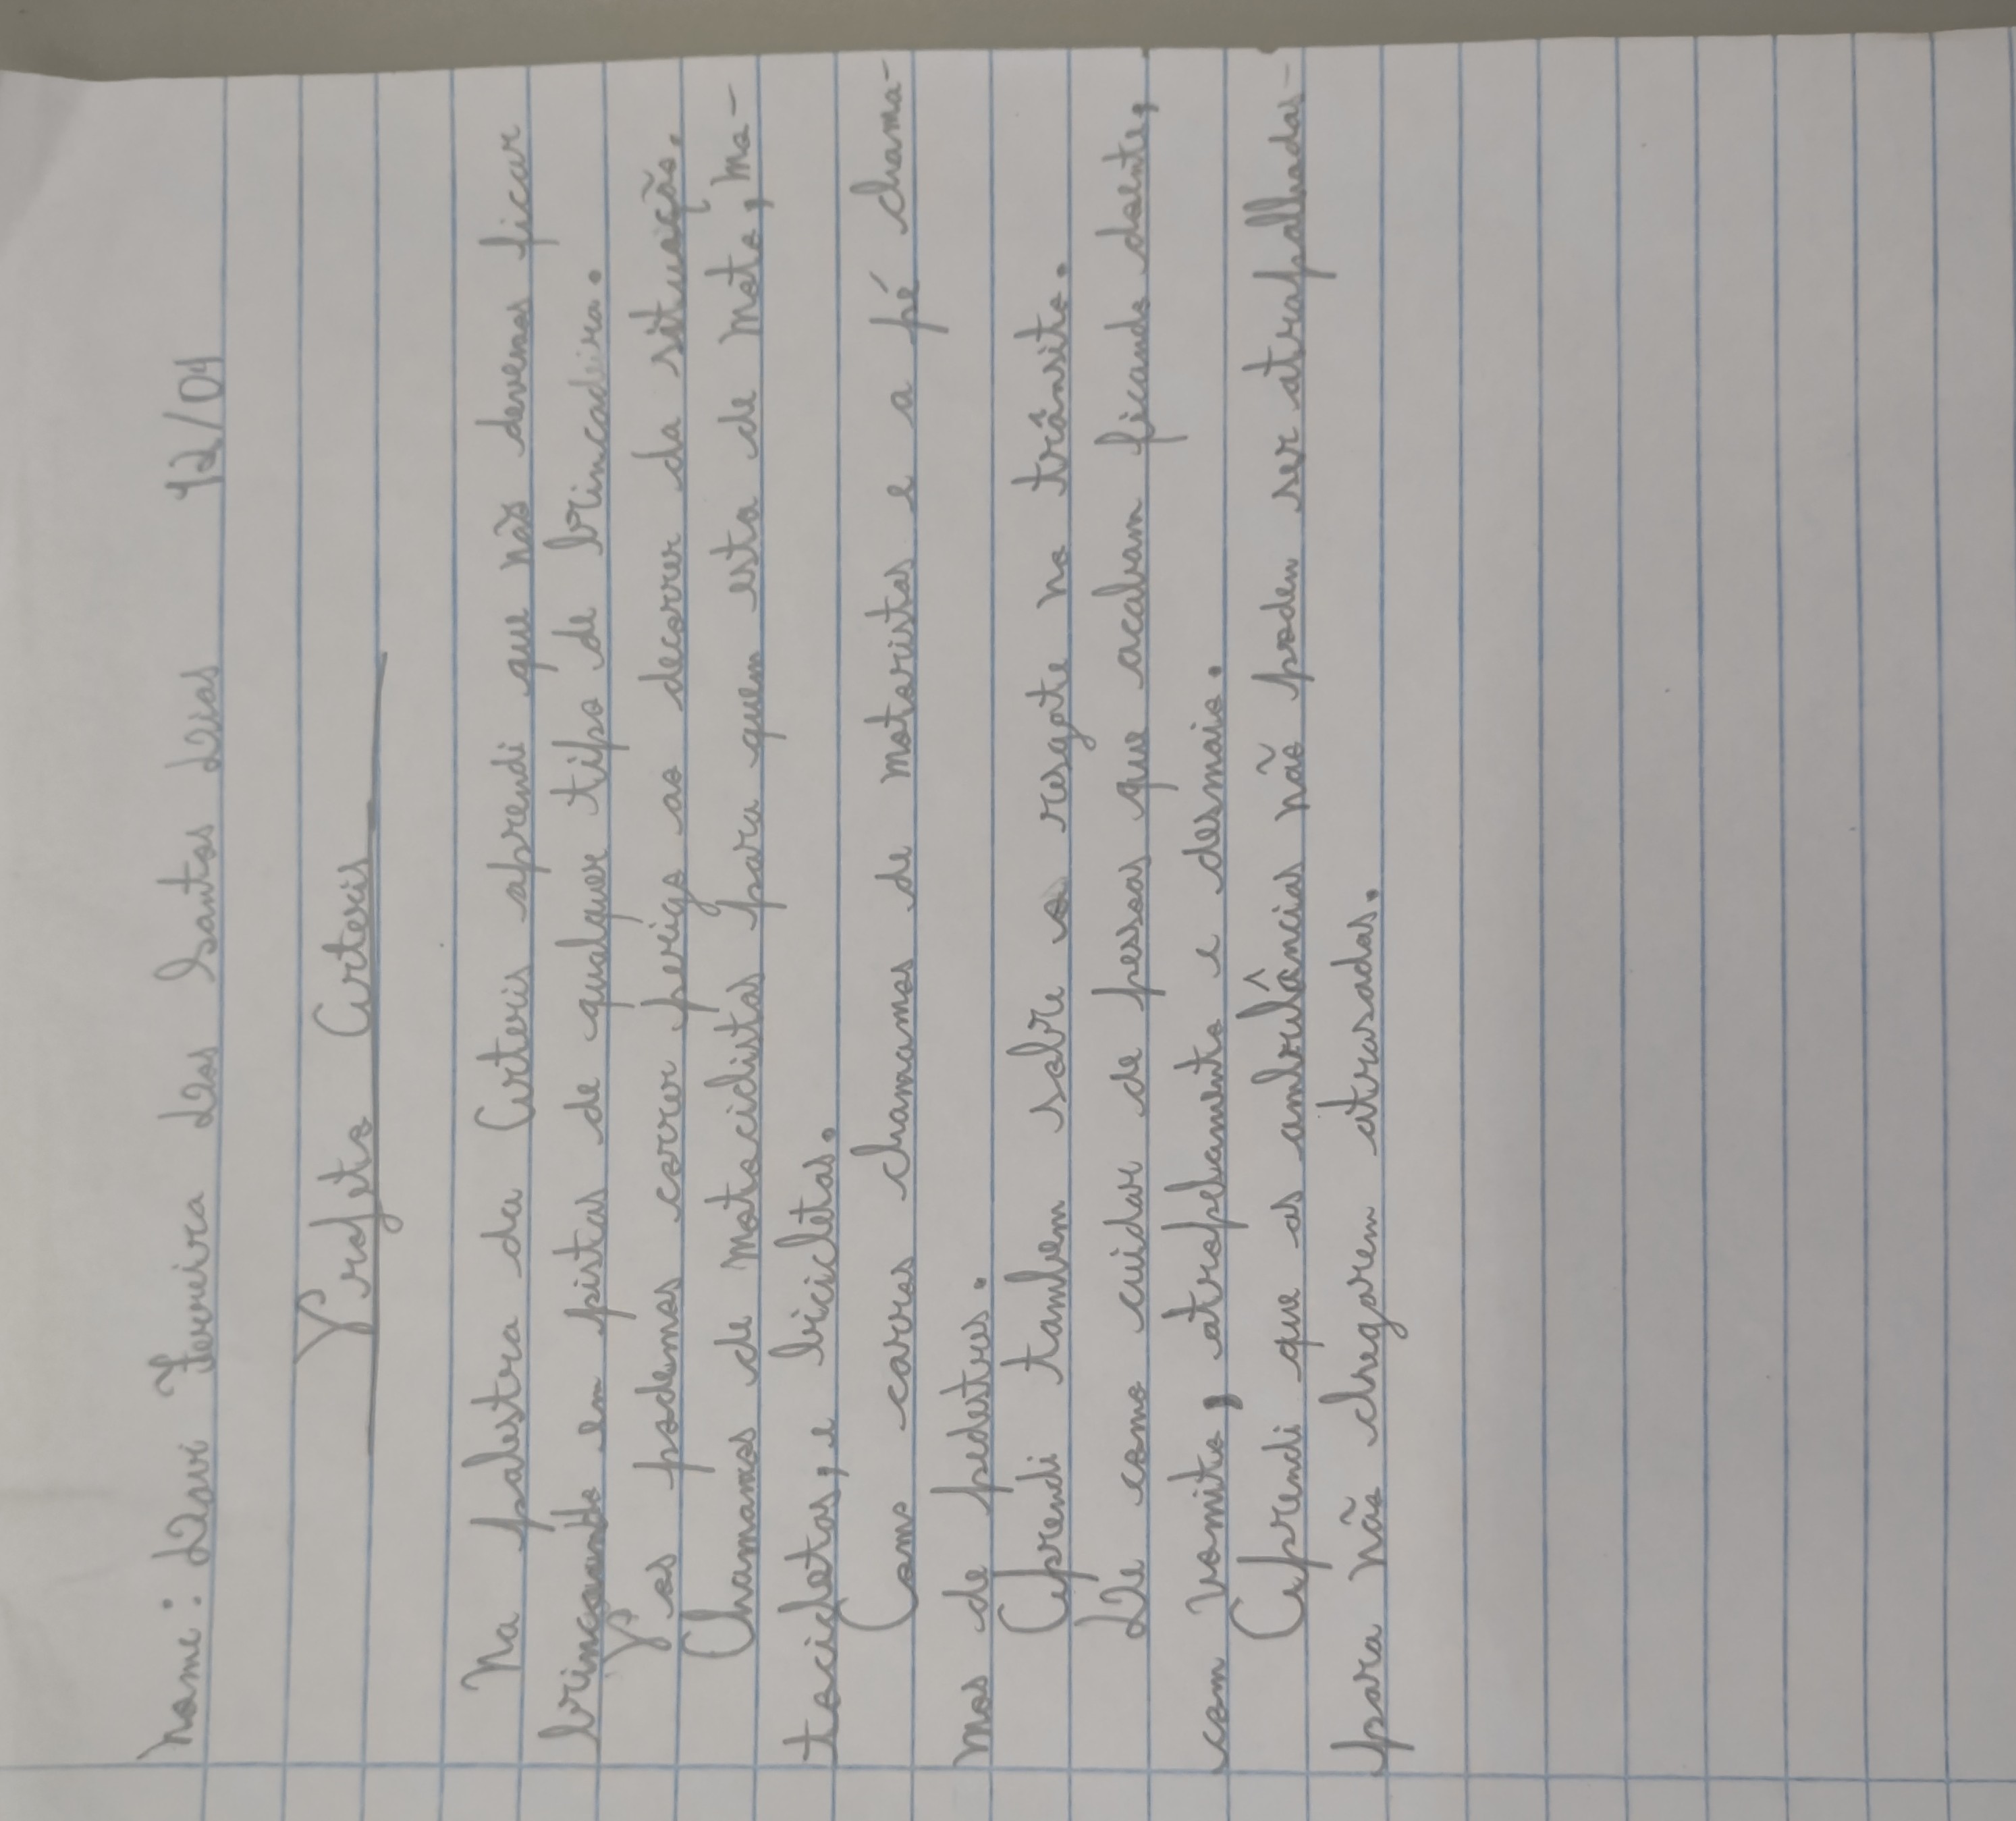 Nome: Davi Ferreira Dos Santos Dias 12/04
Projeto Arteris
Na palestra da Arteris aprendi que não devemos ficar
brincando em pistas de qualquer tipo de brincadeira.
Pos podemos correr perigo ao decorrer da situação.
Chamamos de motociclistas para quem esta de moto, mo-
tocicletas, e bicicletas.
Como carros chamamos de motoristas e a pé chama-
mos de pedetres.
Aprendi tambem sobre o resgate no trânsito.
De como cuidar de pessoas que acabam ficando doente,
com vomito, atropelamento e desmaio.
Aprendi que as ambulâncias não podem ser atrapalhadas
para não chegarem atrasadas.